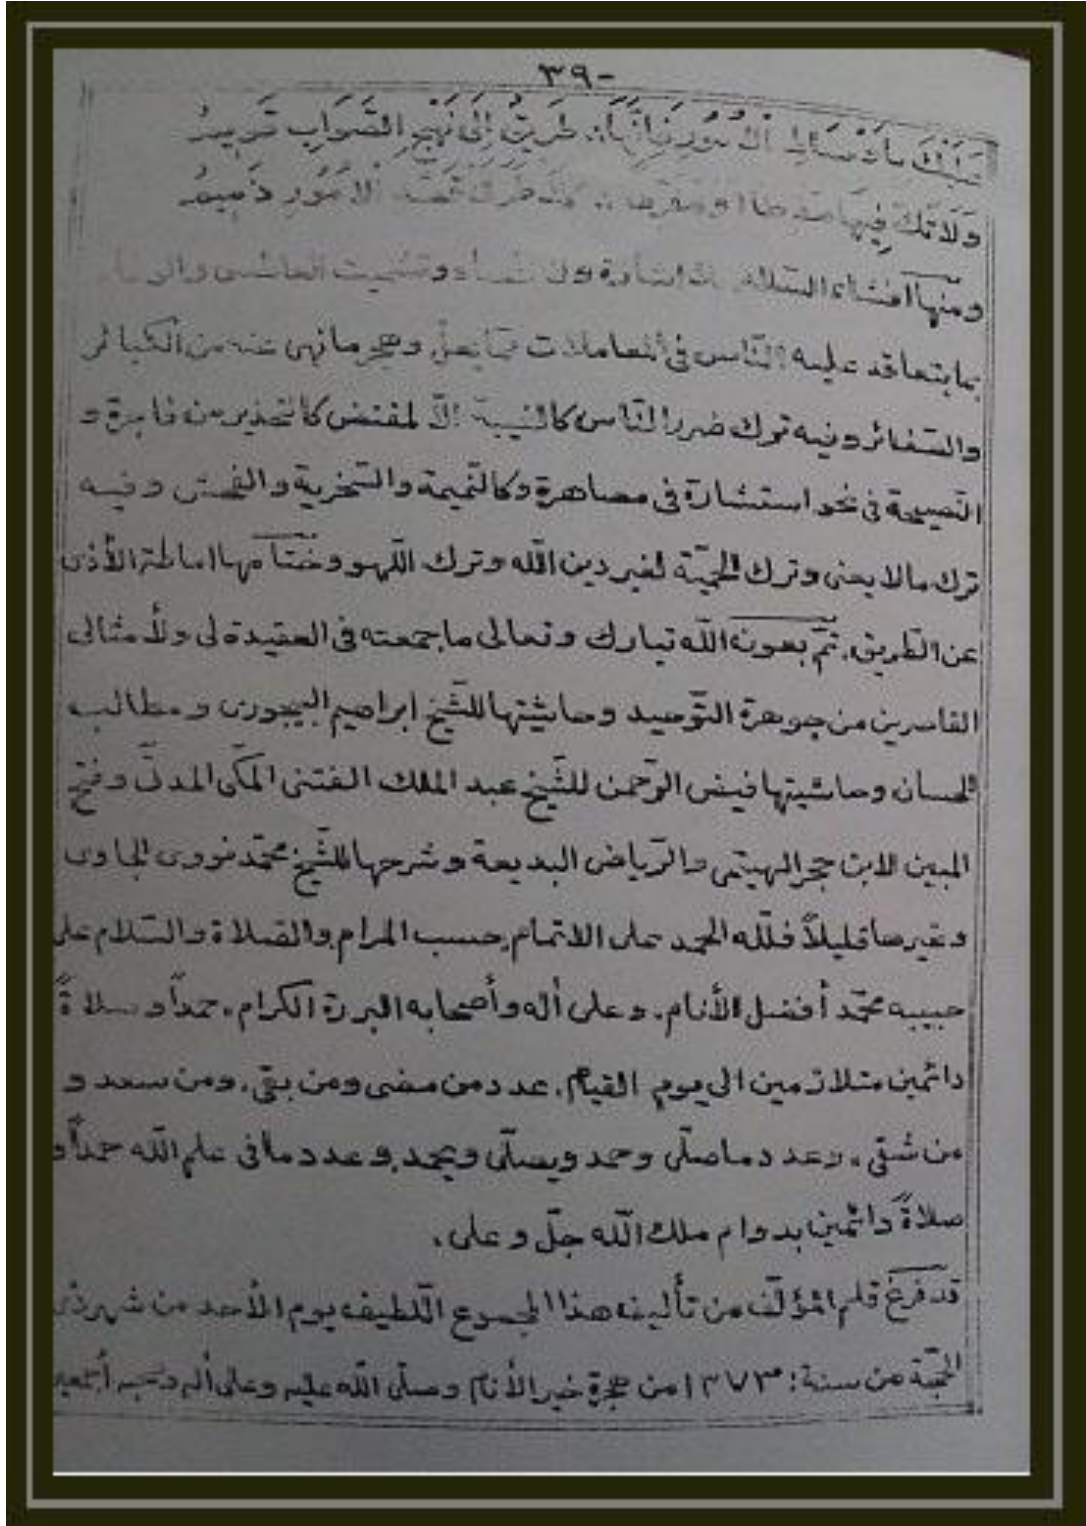 ٣٩-
عليك بأوساط الأمور فإنها :: طَرِيقٌ إِلَى نَهْجِ الصَّوَابِ قَوِيمُ
وَلَاتَكُ فِيهَا مفرطا أو مفرطا :: الأُمُورِ ذَمِيمُ
ومنها افشاء السلام وتشميت العاطس
بما يتعاقد عليه النّاس فى المعاملات وهجر ما نهى عنه من الكبائر
والصّغائر وفيه ترك ضرر النّاس كالغيبة الّا لمقتض كالتحذير من فاجرة و
النّصيحة فى نحو استشارة فى مصاهرة وكالنّميمة والسّخرية والفحش وفيه
ترك مالا يعنى وترك الحميّة لغير دين اللّه وترك اللّهو وختامها اماطة الأذى
عن الطّريق. تمّ بعون اللّه تبارك وتعالى ما جمعته فى العقيدة لى ولأمثالى
القاصرين من جوهرة التّوحيد وحاشيتها للشّيخ ابراهيم البيجورى ومطالب
الحسان وحاشيتها فيض الرّحمن للشّيخ عبد الملك الفتنى المكّى المدنّى وفتح
المبين لابن حجر الهيتمى والرّياض البديعة وشرحها للشّيخ محمّد نووى الجاوى
وغيرها قليلاً فللّه الحمد على الاتمام، حسب المرام، والصّلاة والسّلام على
حبيبه محمّد أفضل الأنام. وعلى أله وأصحابه البررة الكرام. حمداً وصلاةً
دائمين متلازمين الى يوم القيام. عدد من مضى ومن بقي. ومن سعد و
من شقي. وعدد ما صلّى وحمد ويصلّى ويحمد، وعدد ما فى علم اللّه حمداً و
صلاةً دائمين بدوام ملك اللّه جلّ وعلى.
قد فرغ قلم المؤلّف من تأليف هذا المجموع اللّطيف يوم الأحد من شهر ذى
الحجّة من سنة: ١٣٧٣ من هجرة خير الأنام وصلّى اللّه عليه وعلى أله وصحبه أجمعين